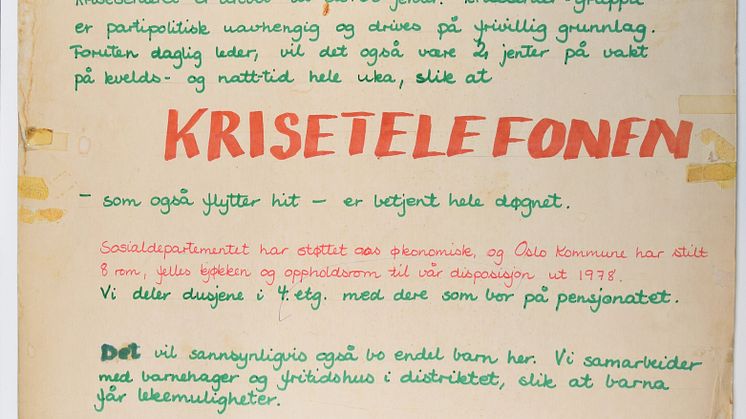 er partipolitisk uavhengig og drives på frivillig grunnlag.
Foruten daglig leder, vil det også være 2 jenter på vakt
på kvelds- og natt-tid hele uka, slik at
KRISETELEFONEN
– som også flytter hit – er betjent hele døgnet.
Sosialdepartementet har støttet oss økonomisk, og Oslo Kommune har stilt
8 rom, felles kjøkken og oppholdsrom til vår disposisjon ut 1978.
Vi deler dusjene i 4. etg. med dere som bor på pensjonatet.
Det vil sannsynligvis også bo endel barn her. Vi samarbeider
med barnehager og fritidshus i distriktet, slik at barna
får lekemuligheter.